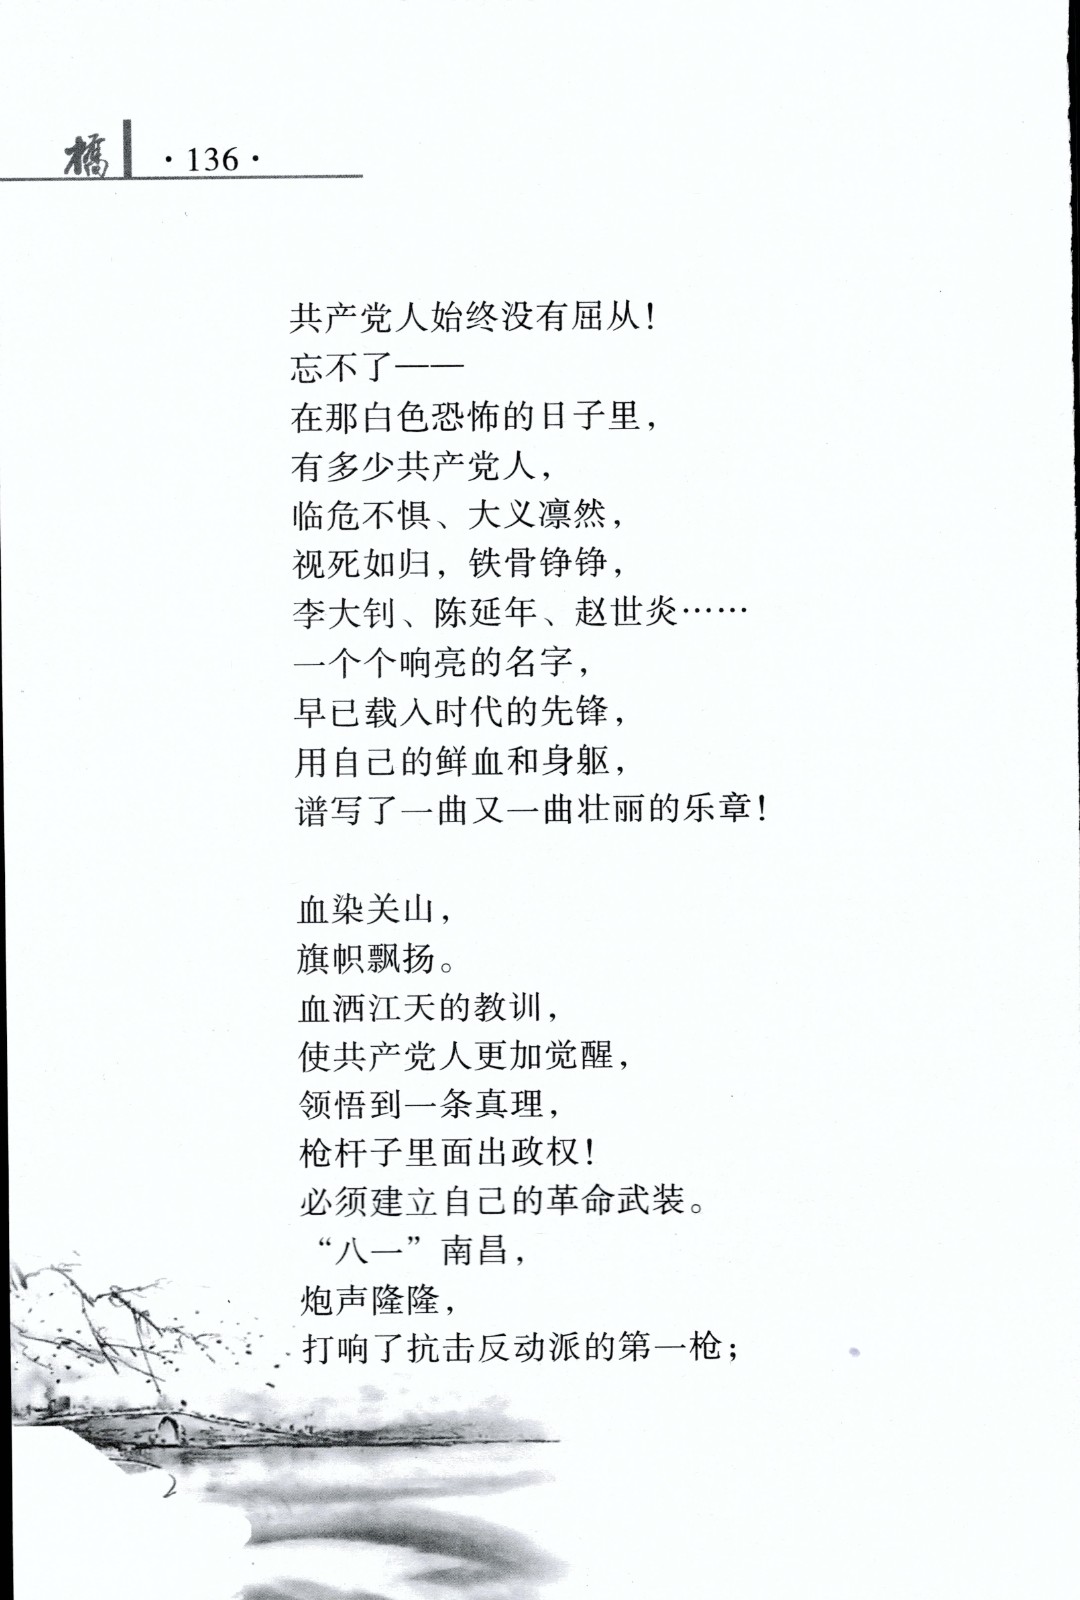 橋 ·136·
共产党人始终没有屈从！
忘不了——
在那白色恐怖的日子里，
有多少共产党人，
临危不惧、大义凛然，
视死如归，铁骨铮铮，
李大钊、陈延年、赵世炎……
一个个响亮的名字，
早已载入时代的先锋，
用自己的鲜血和身躯，
谱写了一曲又一曲壮丽的乐章！
血染关山，
旗帜飘扬。
血洒江天的教训，
使共产党人更加觉醒，
领悟到一条真理，
枪杆子里面出政权！
必须建立自己的革命武装。
“八一”南昌，
炮声隆隆，
打响了抗击反动派的第一枪；